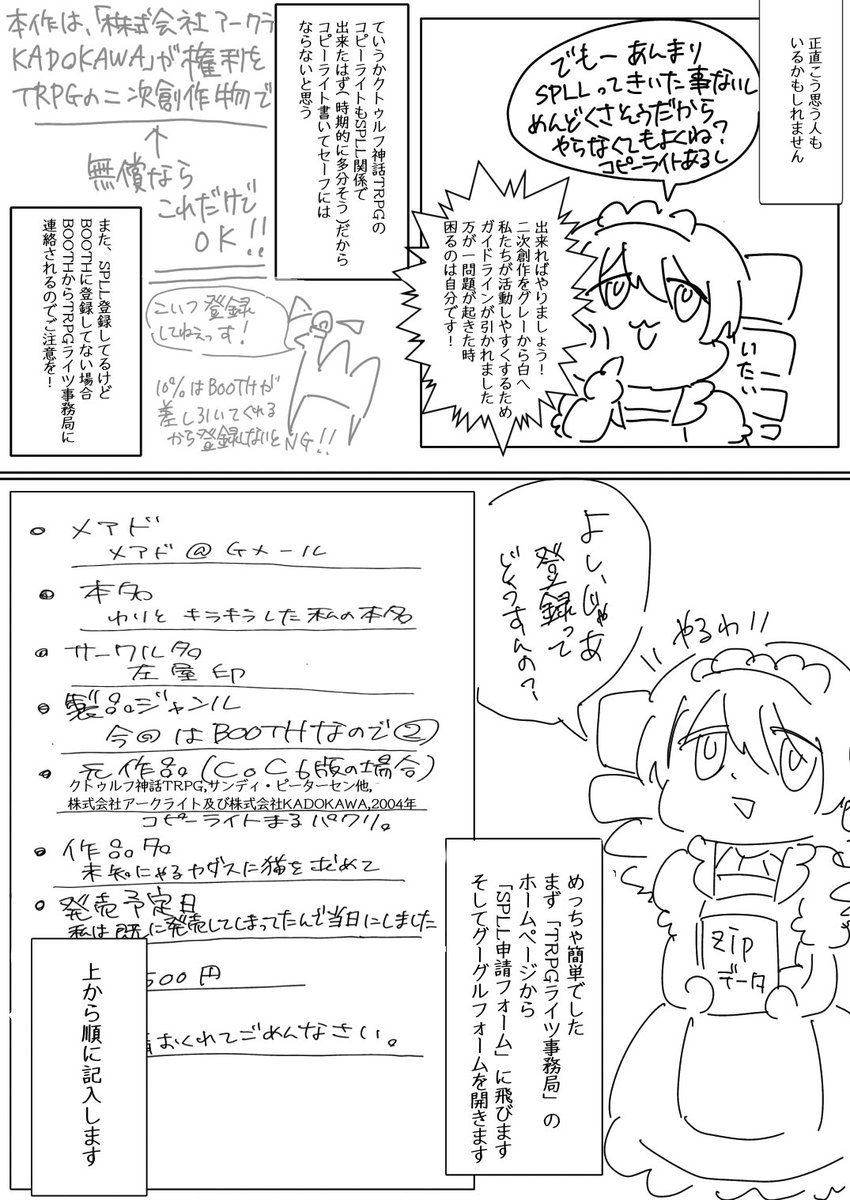 正直こう思う人も
いるかもしれません
でもー あんまり
SPLLってきいた事ないし
めんどくさそうだから
やらなくてもよくね?
コピーライトあるし
いたい
出来ればやりましょう!
二次創作をグレーから白へ
私たちが活動しやすくするため
ガイドラインが引かれました
万が一問題が起きた時
困るのは自分です!
ていうかクトゥルフ神話TRPGの
コピーライトもSPLL関係で
出来たはず(時期的に多分そう)だから
コピーライト書いてセーフには
ならないと思う
本作は、「株式会社アークラ
KADOKAWA」が権利を
TRPGの二次創作物で
↑
無償なら
これだけで
OK!!
こいつ登録
してねえっす!
10%はBOOTHが
差し引いてくれる
から登録しないとNG!!
また、SPLL登録してるけど
BOOTHに登録してない場合
BOOTHからTRPGライツ事務局に
連絡されるのでご注意を!
よし、じゃあ
登録って
どうすんの?
やるわ
zip
データ
めっちゃ簡単でした
まず「TRPGライツ事務局」の
ホームページから
「SPLL申請フォーム」に飛びます
そしてグーグルフォームを開きます
メアド
メアド@Gメール
本名
わりとキラキラした私の本名
サークル名
左屋印
製品ジャンル
今回はBOOTHなので②
元作品(CoC6版の場合)
クトゥルフ神話TRPG,サンディ・ピーターセン他,
株式会社アークライト及び株式会社KADOKAWA,2004年
コピーライトまるパクリ。
作品名
未知にゃるカダスに猫を求めて
発売予定日
私は既に発売してしまってたんで当日にしました
500円
おくれてごめんなさい。
上から順に記入します